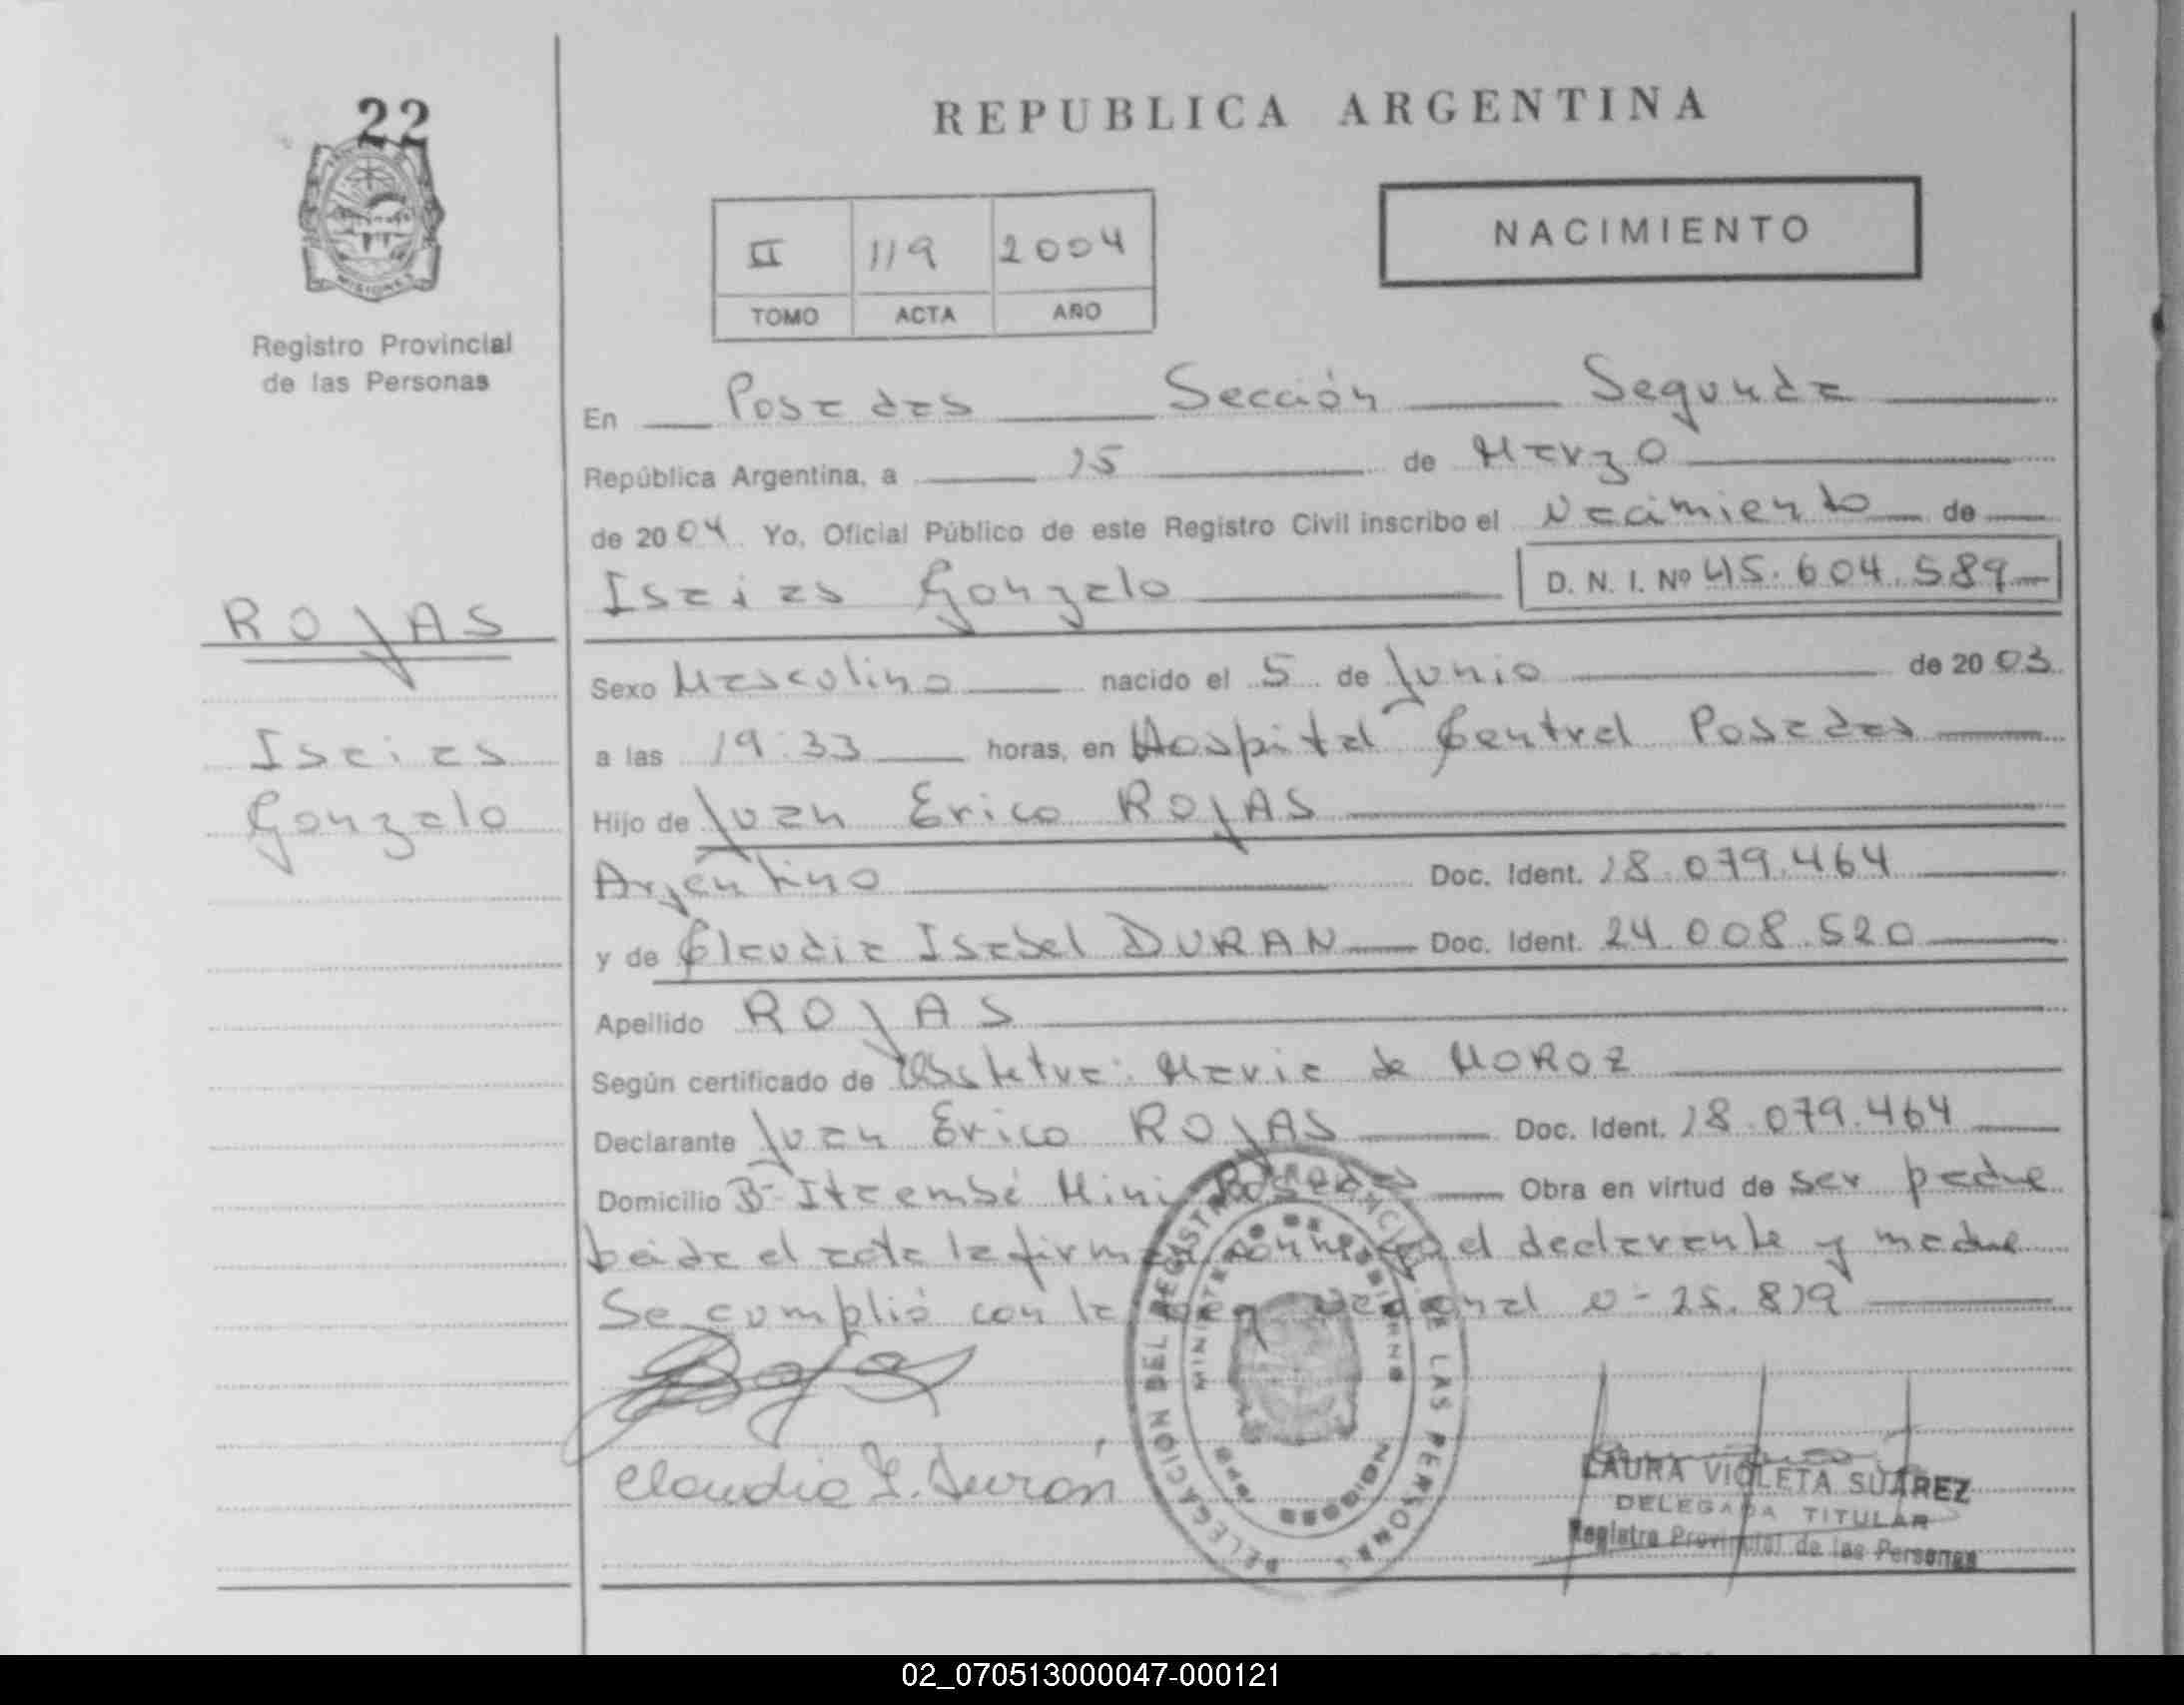 22
REPUBLICA ARGENTINA
NACIMIENTO
II 119 2004
TOMO ACTA AÑO
MISIONES
Registro Provincial
de las Personas
En Posadas Sección Segunda
República Argentina, a 15 de Marzo
de 2004 Yo, Oficial Público de este Registro Civil inscribo el Nacimiento de
Isaias Gonzalo D. N. I. Nº 45.604.589
ROJAS
Isaias
Gonzalo
Sexo Masculino nacido el 5 de Junio de 2003
a las 19:33 horas, en Hospital Central Posadas
Hijo de Juan Erico ROJAS
Argentino Doc. Ident. 18.079.464
y de Claudia Isabel DURAN Doc. Ident. 24.008.520
Apellido ROJAS
Según certificado de Obstetra: Maria de MOROZ
Declarante Juan Erico ROJAS Doc. Ident. 18.079.464
Domicilio Bº Itaembé Mini Posadas Obra en virtud de ser padre
leida el acta la firman conmigo el declarante y madre
Se cumplió con la Ley Nacional Nº 25.819
Rojas
Claudia I. Durán
DELEGACION DEL REGISTRO PROVINCIAL DE LAS PERSONAS
MINISTERIO DE GOBIERNO
LAURA VIOLETA SUAREZ
DELEGADA TITULAR
Registro Provincial de las Personas
02_070513000047-000121